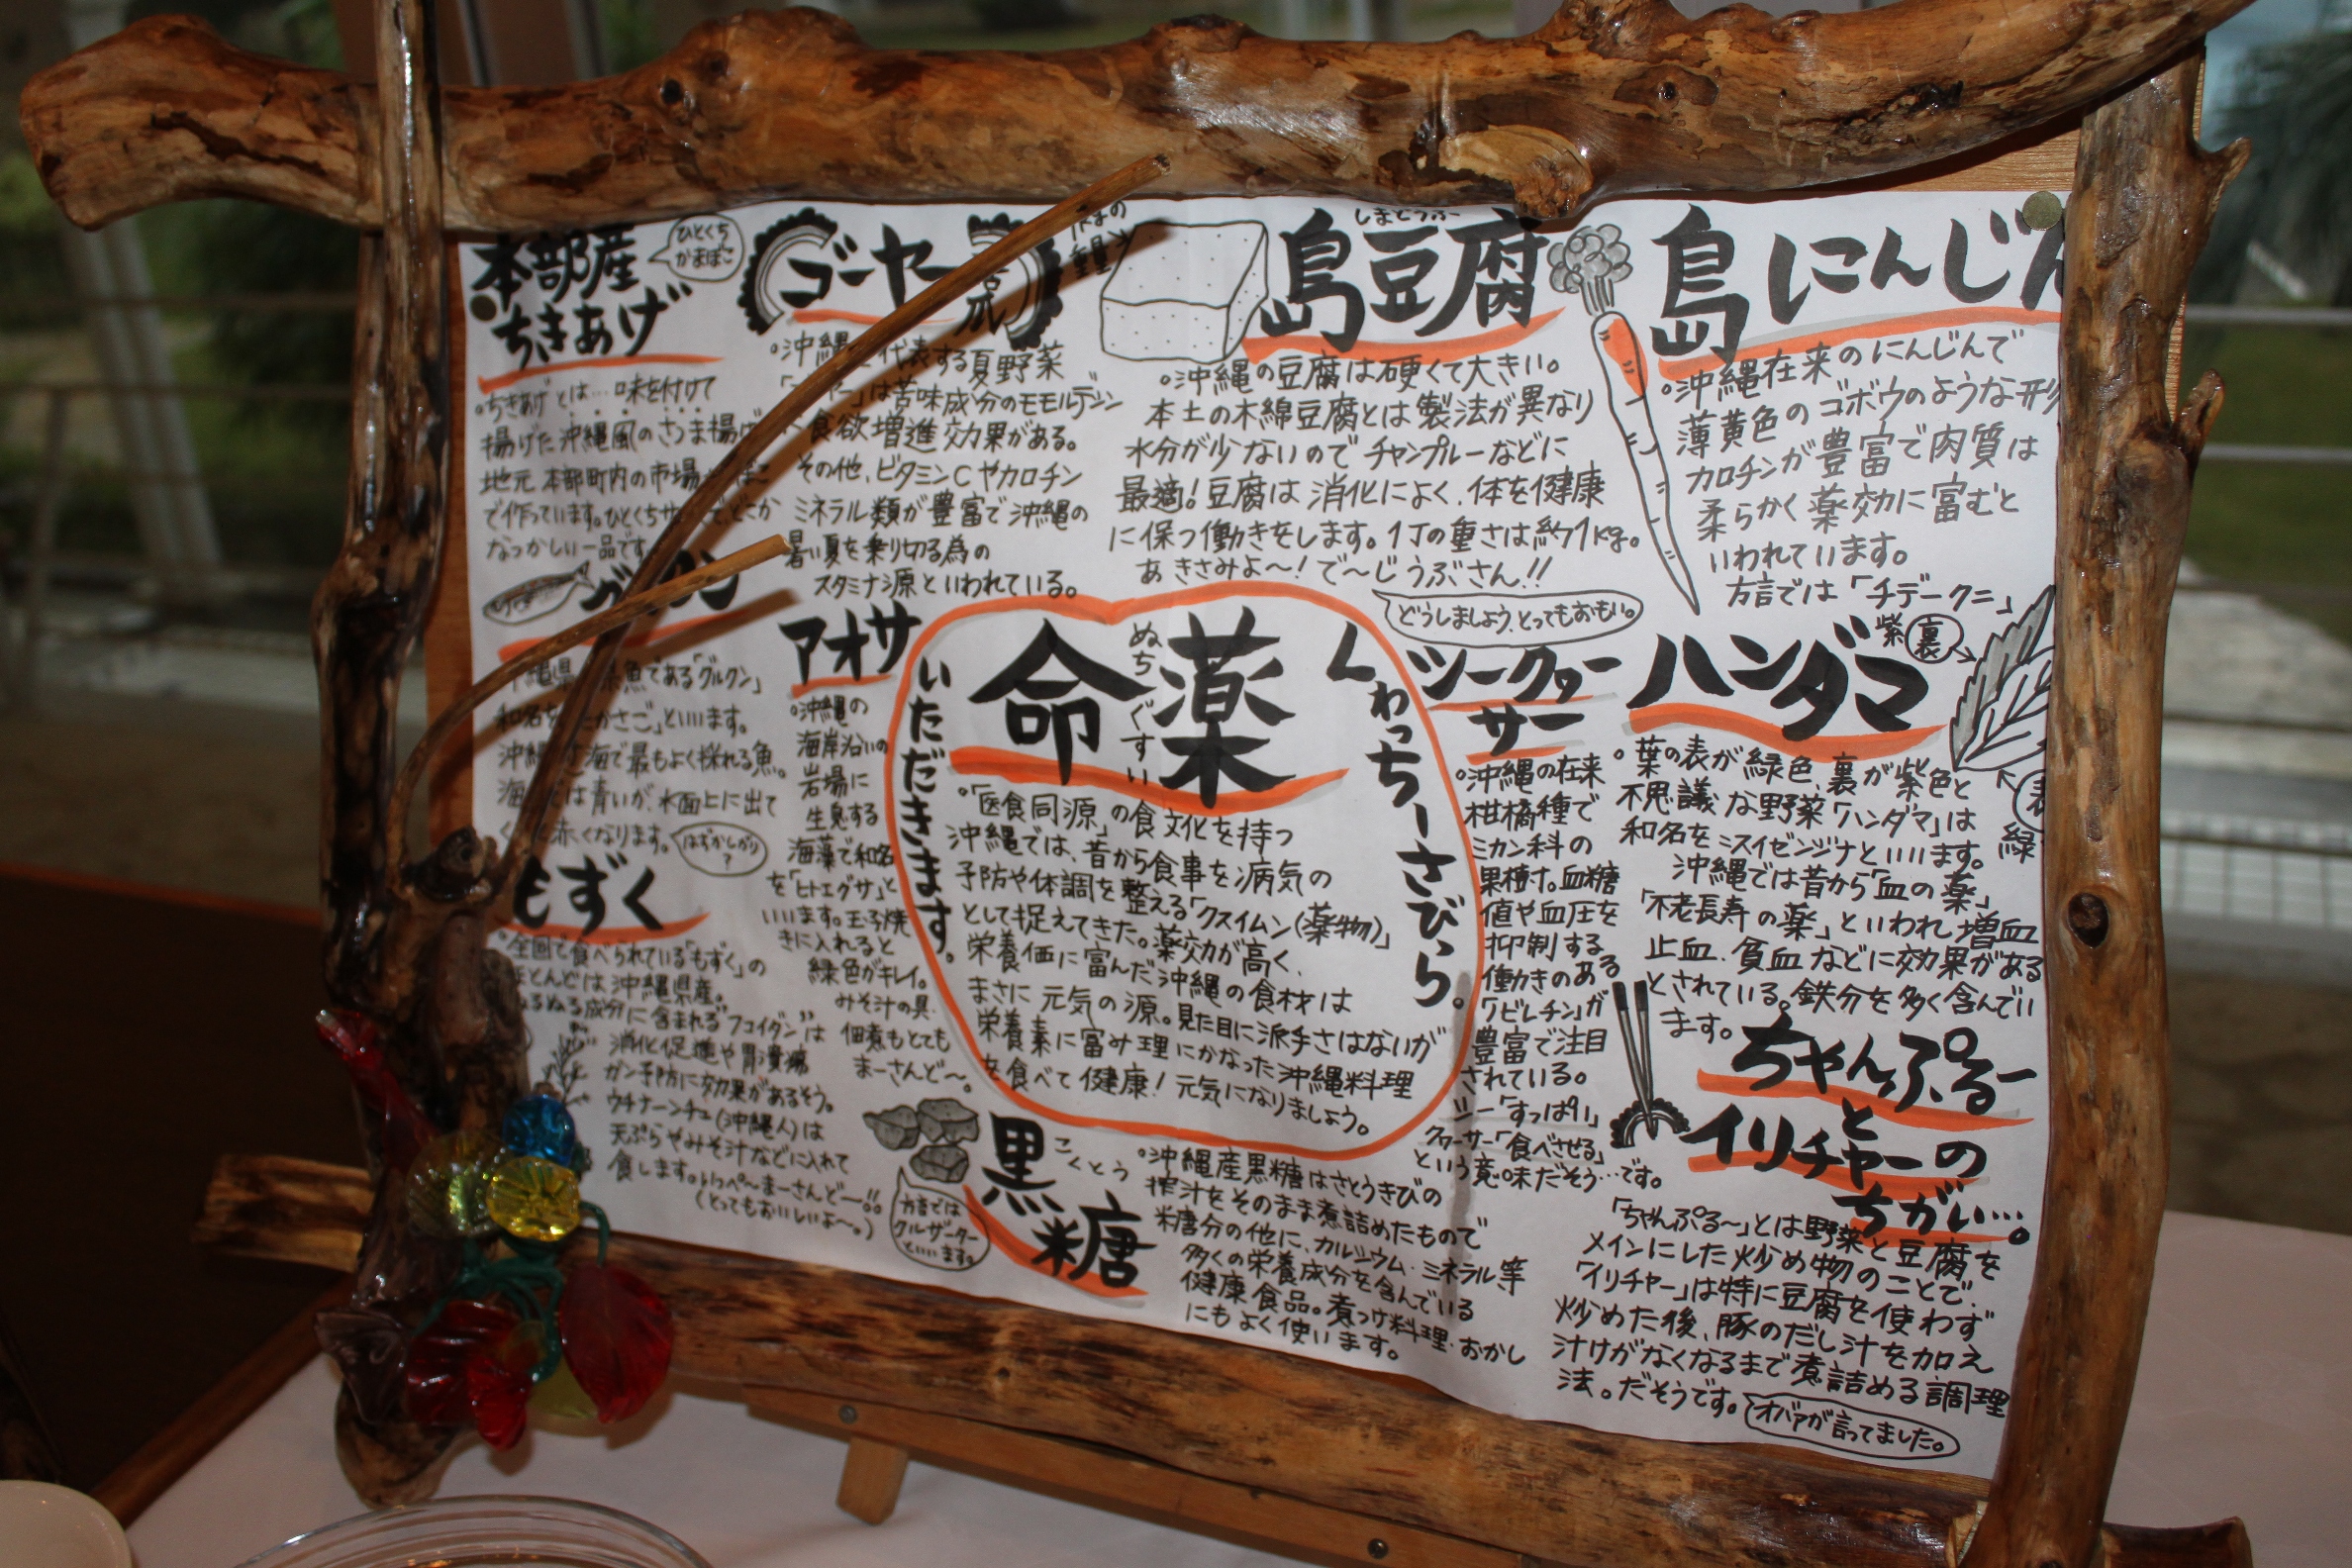 本部産
ちきあげ
ひとくち
かまぼこ
°ちきあげとは…味を付けて
揚げた沖縄風のさつま揚げ
地元本部町内の市場
で作っています。ひとくち
なつかしい一品です
ゴーヤー
°沖縄 代表する夏野菜
は苦味成分のモモルデシン
食欲増進効果がある。
その他、ビタミンCやカロチン
ミネラル類が豊富で沖縄の
暑い夏を乗り切る為の
スタミナ源といわれている。
しまどうふ
島豆腐
°沖縄の豆腐は硬くて大きい。
本土の木綿豆腐とは製法が異なり
水分が少ないのでチャンプルーなどに
最適!豆腐は消化によく、体を健康
に保つ働きをします。1丁の重さは約1kg。
あきさみよ〜!で〜じうぶさん!!
どうしましょう、とってもおもい。
島にんじん
°沖縄在来のにんじんで
薄黄色のゴボウのような形
カロチンが豊富で肉質は
柔らかく薬効に富むと
いわれています。
方言では「チデークニ」
県魚である「グルクン」
和名を たかさご」といいます。
沖縄 海で最もよく採れる魚。
は青いが、水面上に出て
赤くなります。
はずかしがり
?
もずく
°全国で食べられている「もずく」の
ほとんどは沖縄県産。
ぬるぬる成分に含まれる"フコイダン"は
消化促進や胃潰瘍
ガン予防に効果があるそう。
ウチナーンチュ(沖縄人)は
天ぷらやみそ汁などに入れて
食します。いっぺ〜まーさんど〜!!
(とってもおいしいよ〜。)
アオサ
°沖縄の
海岸沿いの
岩場に
生息する
海藻で和名
を「ヒトエグサ」と
いいます。玉子焼
きに入れると
緑色がキレイ。
みそ汁の具、
佃煮もとても
まーさんど〜。
いただきます。
命薬
ぬちぐすい
くわっちーさびら。
°「医食同源」の食文化を持つ
沖縄では、昔から食事を病気の
予防や体調を整える「クスイムン(薬物)」
として捉えてきた。薬効が高く、
栄養価に富んだ沖縄の食材は
まさに元気の源。見た目に派手さはないが
栄養素に富み理にかなった沖縄料理
を食べて健康!元気になりましょう。
シークヮー
サー
°沖縄の在来
柑橘種で
ミカン科の
果樹す。血糖
値や血圧を
抑制する
働きのある
「ノビレチン」が
豊富で注目
されている。
シー「すっぱい」
クヮーサー「食べさせる」
という意味だそう…です。
ハンダマ
紫
裏
表
緑
°葉の表が緑色、裏が紫色と
不思議な野菜「ハンダマ」は
和名をスイゼンジナといいます。
沖縄では昔から「血の薬」
「不老長寿の薬」といわれ増血
止血、貧血などに効果がある
とされている。鉄分を多く含んでい
ます。
黒糖
こくとう
方言では
クルザーター
といいます。
°沖縄産黒糖はさとうきびの
搾汁をそのまま煮詰めたもので
糖分の他に、カルシウム・ミネラル等
多くの栄養成分を含んでいる
健康食品。煮つけ料理・おかし
にもよく使います。
ちゃんぷるー
と
イリチャーの
ちがい…。
「ちゃんぷる〜」とは野菜と豆腐を
メインにした炒め物のことで、
「イリチャー」は特に豆腐を使わず
炒めた後、豚のだし汁を加え
汁けがなくなるまで煮詰める調理
法。だそうです。
オバァが言ってました。